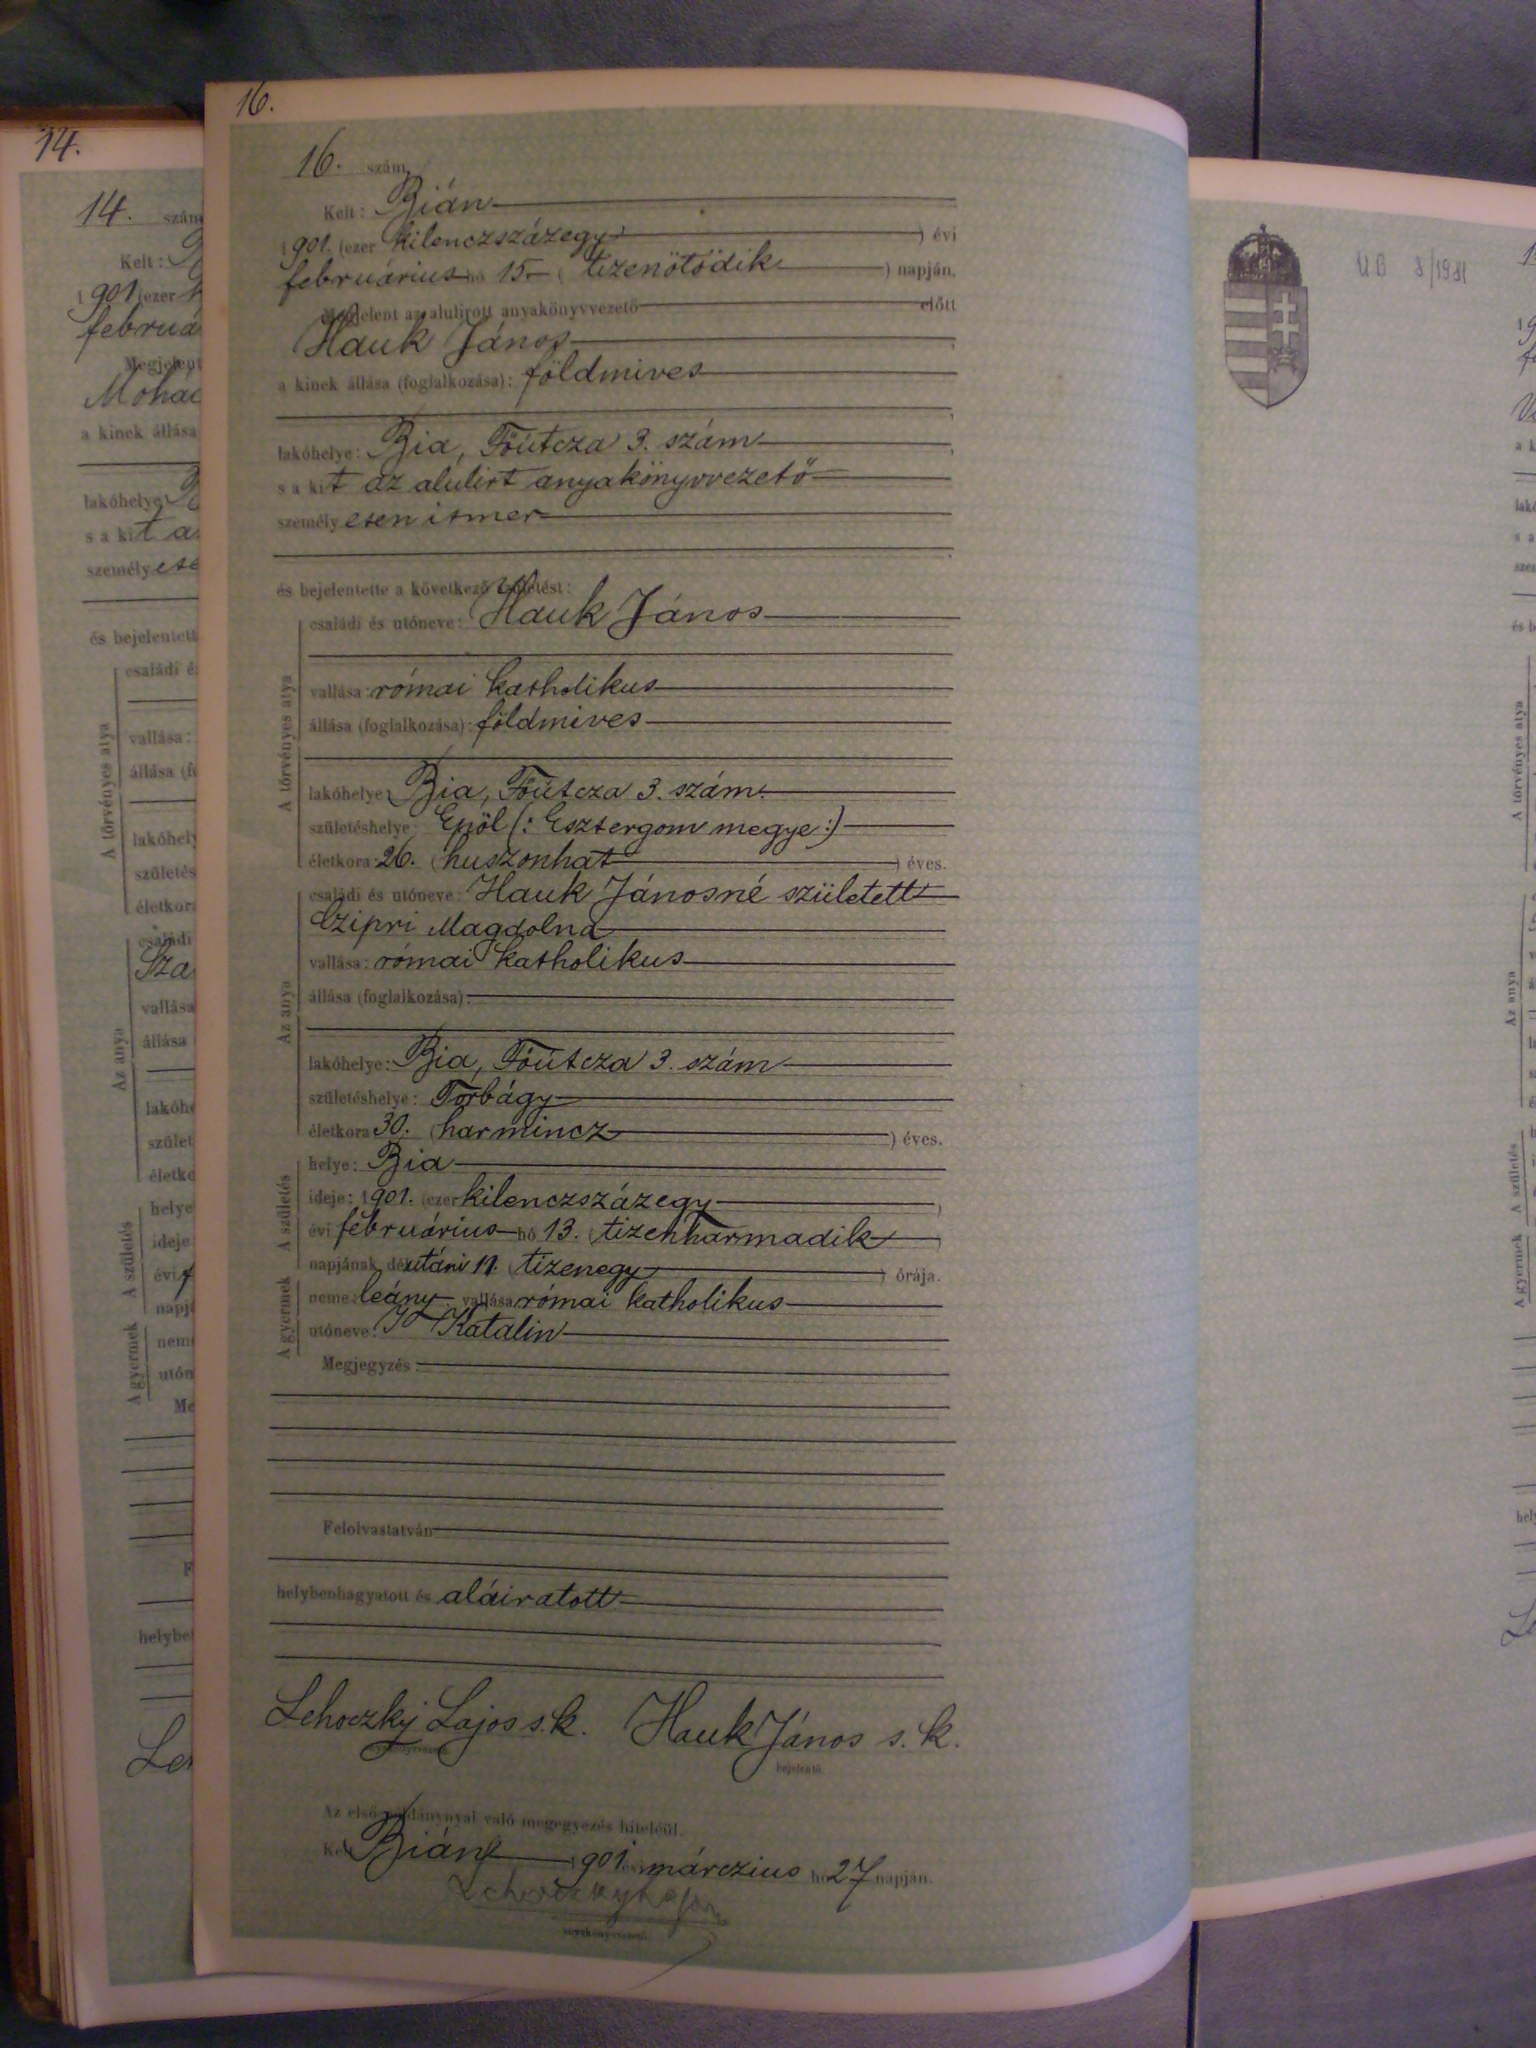 14.
14. szám
Kelt:
1901. (ezer
februá
Megjelent
Mohác
a kinek állása
lakóhelye:
s a kit a
személyese
és bejelentett
A törvényes atya
családi é
vallása:
állása (f
lakóhely
születés
életkor
Az anya
családi
Sza
vallása
állása
lakóhe
szület
életko
A születés
helye
ideje
évi f
napj
A gyermek
nem
utón
Me
F
helybe
Le
16.
16. szám
Kelt: Bián
1901. (ezer kilenczszázegy) évi
februárius hó 15 (tizenötödik) napján.
Megjelent az alulirott anyakönyvvezető előtt
Hauk János,
a kinek állása (foglalkozása): földmives
lakóhelye: Bia, Főútcza 3. szám,
s a kit az alulirt anyakönyvvezető
személyesen ismer
és bejelentette a következő születést:
A törvényes atya
családi és utóneve: Hauk János
vallása: római katholikus
állása (foglalkozása): földmives
lakóhelye: Bia, Főútcza 3. szám.
születéshelye: Epöl (: Esztergom megye :)
életkora: 26. (huszonhat) éves.
Az anya
családi és utóneve: Hauk Jánosné született
Czipri Magdolna
vallása: római katholikus
állása (foglalkozása):
lakóhelye: Bia, Főútcza 3. szám
születéshelye: Torbágy
életkora 30. (harmincz) éves.
A születés
helye: Bia
ideje: 1901. (ezer kilenczszázegy)
évi februárius hó 13. (tizenharmadik)
napjának délutáni 11. (tizenegy) órája.
A gyermek
neme: leány vallása: római katholikus
utóneve: Katalin
Megjegyzés:
Felolvastatván
helybenhagyatott és aláiratott
Lehoczky Lajos s.k. Hauk János s.k.
anyakönyvvezető. bejelentő.
Az első példánynyal való megegyezés hiteléül.
Kelt Bián 1901. márczius hó 27 napján.
Lehoczky Lajos
anyakönyvvezető.
UB 8/1981
1
19
f
a k
lakó
s a
sze
és b
A törvényes atya
Az anya
A születés
A gyermek
hel
Le